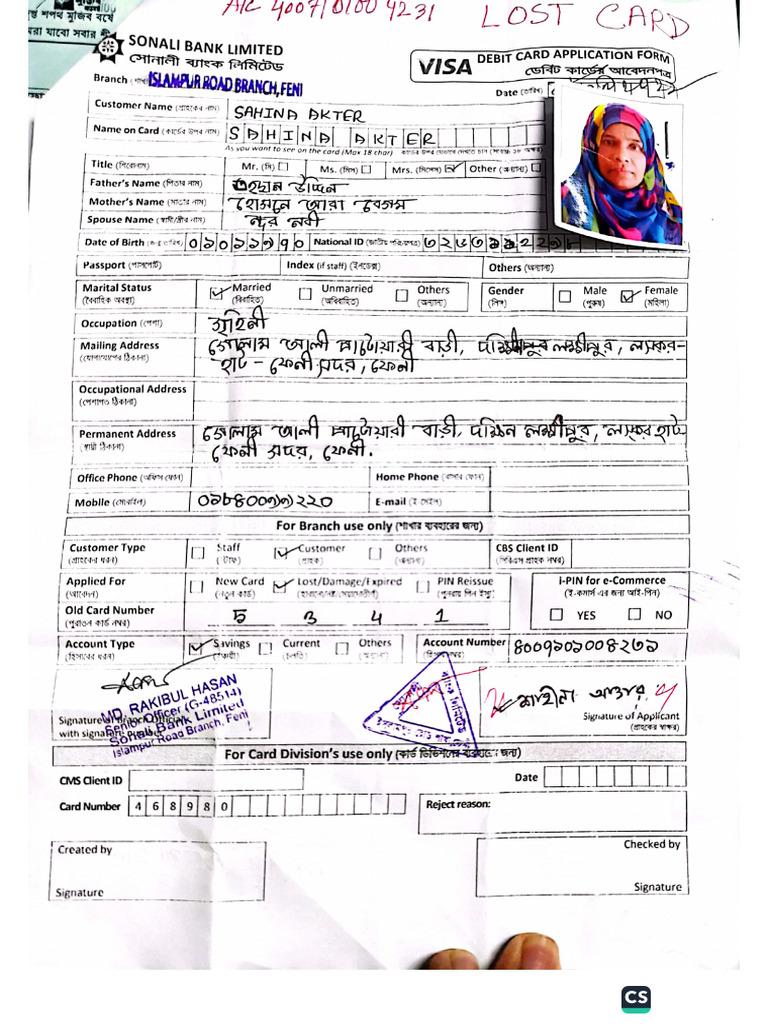 A/C 4007101004231
LOST CARD
শপথ মুজিব বর্ষে
যাবো সবার
SONALI BANK LIMITED
সোনালী ব্যাংক লিমিটেড
VISA DEBIT CARD APPLICATION FORM
ডেবিট কার্ডের আবেদনপত্র
Branch ISLAMPUR ROAD BRANCH, FENI
Date (তারিখ)
Customer Name (গ্রাহকের নাম) SAHINA AKTER
Name on Card (কার্ডের উপর নাম) SAHINA AKTER
As you want to see on the card (Max 18 char)
Title (শিরোনাম) Mr. (মি) Ms. (মিস) Mrs. (মিসেস) Other (অন্যান্য)
Father's Name (পিতার নাম) উদ্দিন
Mother's Name (মাতার নাম) হোসনে আরা বেগম
Spouse Name (স্বামী/স্ত্রীর নাম) নুর নবী
Date of Birth (জন্ম তারিখ) ০১০১১৯৭০ National ID (জাতীয় পরিচয়পত্র)
Passport (পাসপোর্ট) Index (if staff) (ইনডেক্স) Others (অন্যান্য)
Marital Status (বৈবাহিক অবস্থা) Married (বিবাহিত) Unmarried (অবিবাহিত) Others (অন্যান্য) Gender (লিঙ্গ) Male (পুরুষ) Female (মহিলা)
Occupation (পেশা) গৃহিনী
Mailing Address (যোগাযোগের ঠিকানা) গোলাম আলী পাটোয়ারী বাড়ী, লক্ষ্মীপুর, লস্কর-
হাট - ফেনী সদর, ফেনী
Occupational Address
(পেশাগত ঠিকানা)
Permanent Address গোলাম আলী পাটোয়ারী বাড়ী, দক্ষিন লক্ষ্মীপুর, লস্কর হাট
(স্থায়ী ঠিকানা) ফেনী সদর, ফেনী.
Office Phone (অফিস ফোন) Home Phone (বাসার ফোন)
Mobile (মোবাইল) E-mail (ই মেইল)
For Branch use only (শাখার ব্যবহারের জন্য)
Customer Type (গ্রাহকের ধরন) Staff (স্টাফ) Customer (গ্রাহক) Others (অন্যান্য) CBS Client ID
Applied For (আবেদন) New Card (নতুন কার্ড) Lost/Damage/Expired PIN Reissue i-PIN for e-Commerce
(ই-কমার্স এর জন্য আই-পিন)
YES NO
Old Card Number (পুরাতন কার্ড নম্বর) 5 3 4 1
Account Type (হিসাবের ধরন) Savings Current (চলতি) Others (অন্যান্য) Account Number
MD. RAKIBUL HASAN
Senior Officer (G-48514)
Sonali Bank Limited
Islampur Road Branch, Feni
with signature
শাহীনা আক্তার
Signature of Applicant
(গ্রাহকের স্বাক্ষর)
For Card Division's use only (কার্ড ডিভিশনের ব্যবহারের জন্য)
CMS Client ID Date
Card Number 468980 Reject reason:
Created by Checked by
Signature Signature
CS